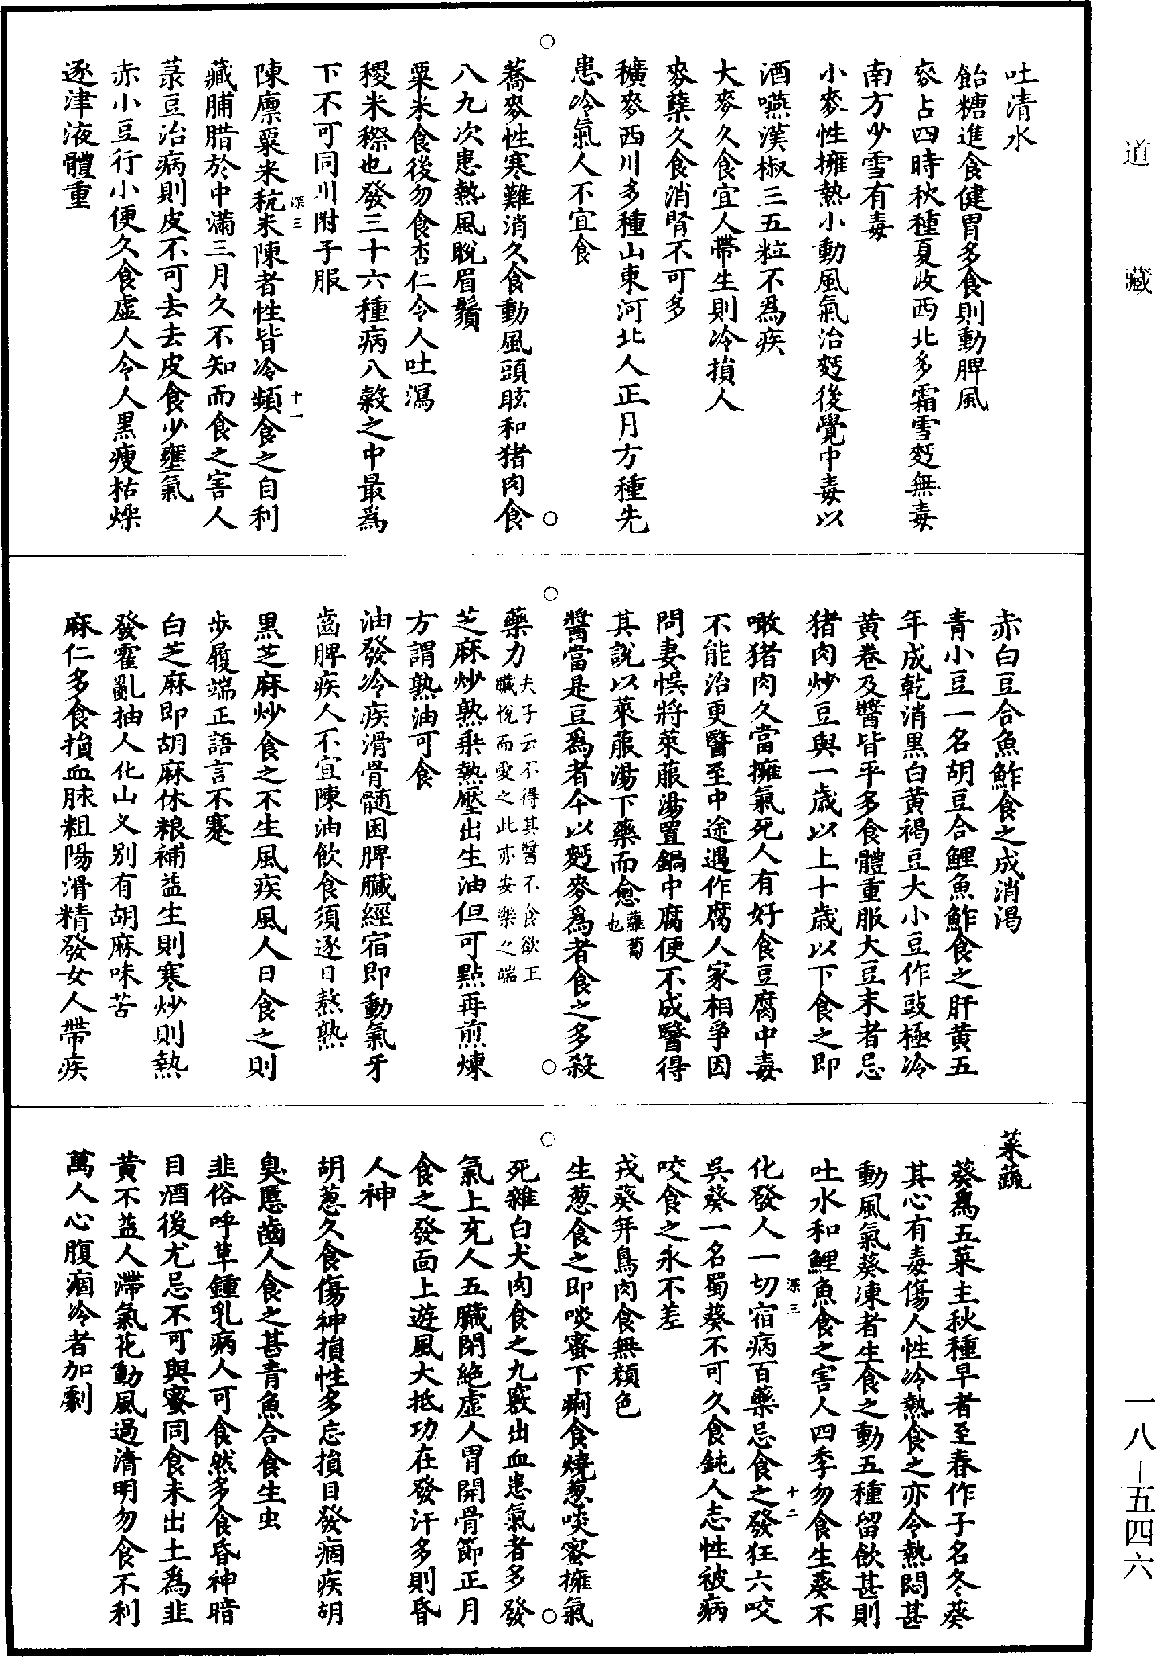 吐清水
飴糖進食健胃多食則動脾風
麥占四時秋種夏收西北多霜雪麪無毒
南方少雪有毒
小麥性擁熱小動風氣治麪後覺中毒以
酒嚥漢椒三五粒不爲疾
大麥久食宜人帶生則冷損人
麥蘖久食消腎不可多
穬麥西川多種山東河北人正月方種先
患冷氣人不宜食
蕎麥性寒難消久食動風頭眩和猪肉食
八九次患熱風脫眉鬚
粟米食後勿食杏仁令人吐瀉
稷米穄也發三十六種病八穀之中最爲
下不可同川附子服
深三
十一
陳廪粟米秔米陳者性皆冷頻食之自利
藏脯腊於中滿三月久不知而食之害人
菉豆治病則皮不可去去皮食少壅氣
赤小豆行小便久食虛人令人黑瘦枯燥
逐津液體重
赤白豆合魚鮓食之成消渴
青小豆一名胡豆合鯉魚鮓食之肝黄五
年成乾消黑白黄褐豆大小豆作豉極冷
黄卷及醬皆平多食體重服大豆末者忌
猪肉炒豆與一歲以上十歲以下食之即
噉猪肉久當擁氣死人有好食豆腐中毒
不能治更醫至中途遇作腐人家相爭因
問妻悮將萊菔湯置鍋中腐便不成醫得
其說以萊菔湯下藥而愈蘿蔔也
醬當是豆爲者今以麪麥爲者食之多殺
藥力夫子云不得其醬不食欲五臟悅而愛之此亦安樂之端
芝麻炒熟乘熱壓出生油但可點再煎煉
方謂熟油可食
油發冷疾滑骨髓困脾臟經宿即動氣牙
齒脾疾人不宜陳油飲食須逐日熬熟
黑芝麻炒食之不生風疾風人日食之則
步履端正語言不蹇
白芝麻即胡麻休粮補益生則寒炒則熱
發霍亂抽人化山义别有胡麻味苦
麻仁多食損血脉粗陽滑精發女人帶疾
菜蔬
葵爲五菜主秋種早者至春作子名冬葵
其心有毒傷人性冷熱食之亦令熱悶甚
動風氣葵凍者生食之動五種留飲甚則
吐水和鯉魚食之害人四季勿食生葵不
深三
十二
化發人一切宿病百藥忌食之發狂六咬
吳葵一名蜀葵不可久食鈍人志性被病
咬食之永不差
戎葵并鳥肉食無顏色
生葱食之即啖蜜下痢食燒葱啖蜜擁氣
死雜白犬肉食之九竅出血患氣者多發
氣上充人五臟閉絶虛人胃開骨節正月
食之發面上遊風大抵功在發汗多則昏
人神
胡葱久食傷神損性多忘損目發痼疾胡
臭䘌齒人食之甚青魚合食生虫
韭俗呼草鍾乳病人可食然多食昏神暗
目酒後尤忌不可與蜜同食未出土爲韭
黄不益人滯氣花動風過清明勿食不利
萬人心腹痼冷者加劇
道藏
一八-五四六